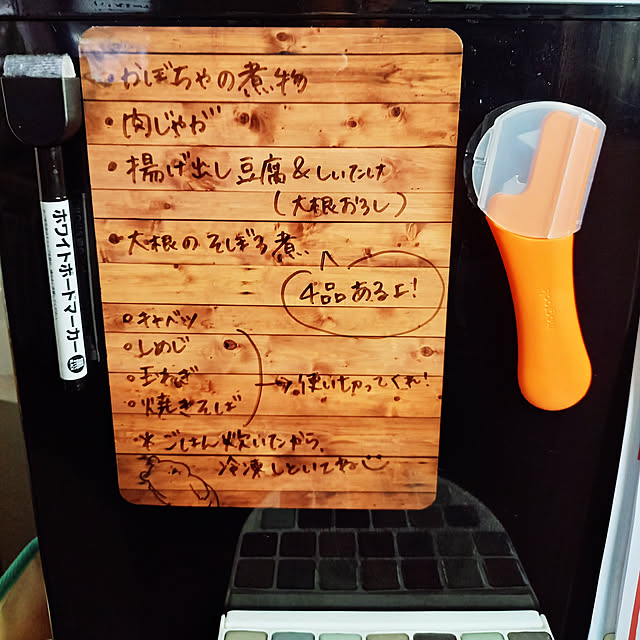 ・かぼちゃの煮物
・肉じゃが
・揚げ出し豆腐&しいたけ
(大根おろし)
・大根のそぼろ煮
4品あるよ!
・キャベツ
・しめじ
・玉ねぎ
・焼きそば
→使い切ってくれ!
*ごはん炊いたから、
冷凍しといてね
ホワイトボードマーカー